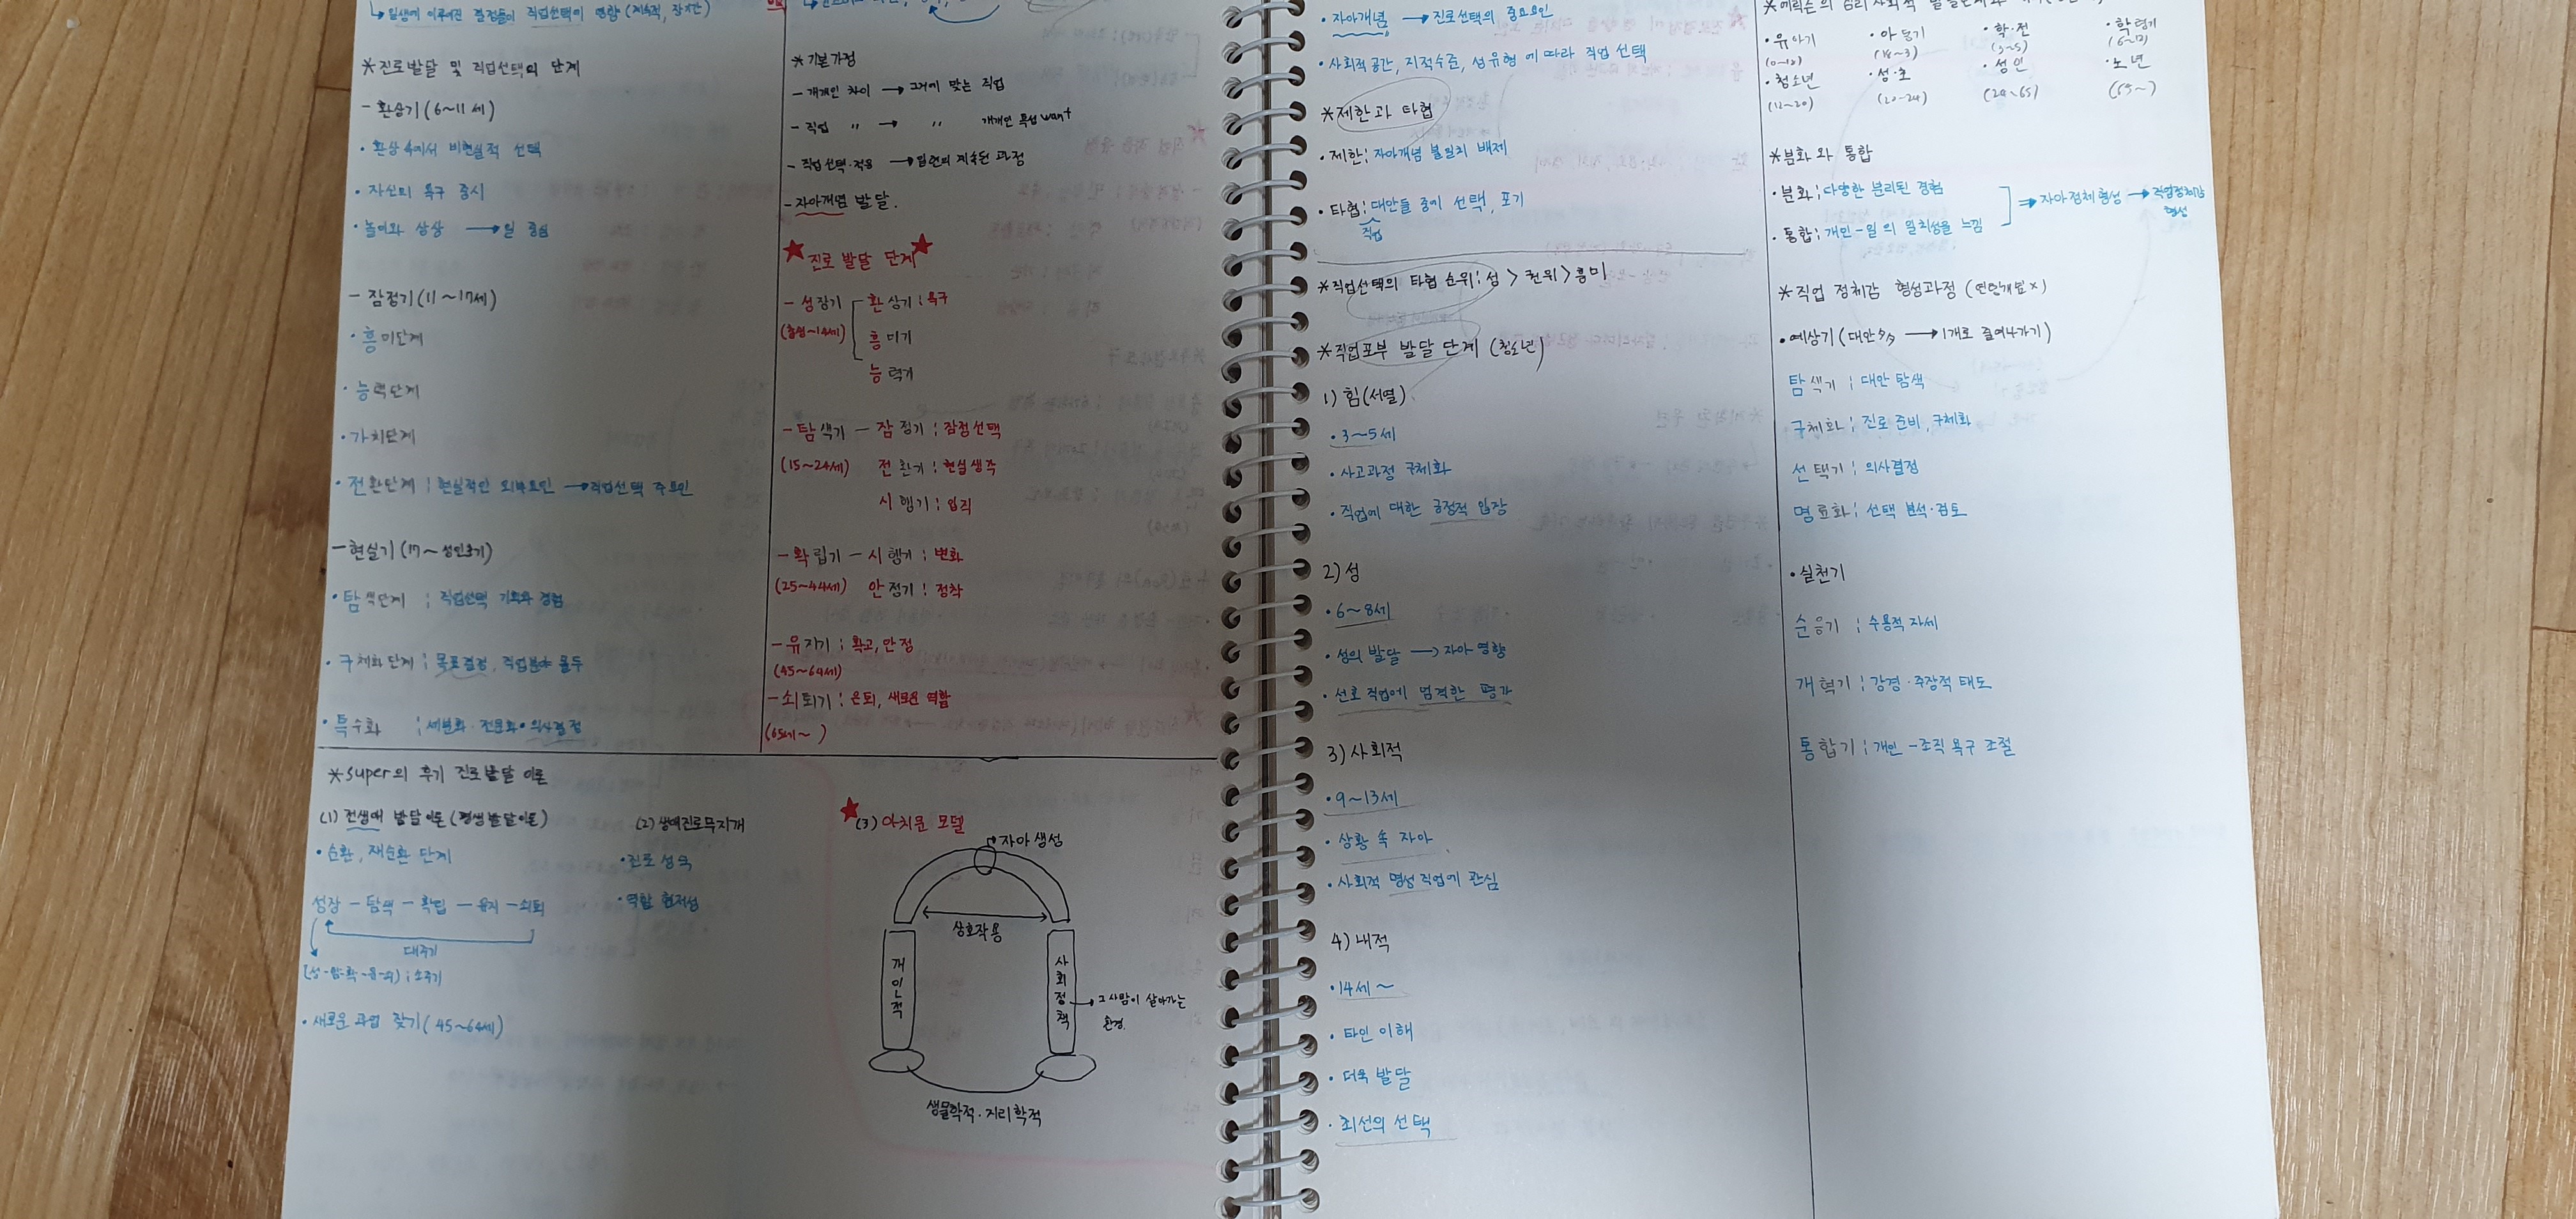 ↳ 일생에 이루어진 결정들이 직업선택에 영향 (지속적, 장기간)
*진로발달 및 직업선택의 단계
- 환상기 (6~11세)
• 환상 속에서 비현실적 선택
• 자신의 욕구 중시
• 놀이와 상상 → 일 중심
- 잠정기 (11~17세)
• 흥미단계
• 능력단계
• 가치단계
• 전환단계 ; 현실적인 외부요인 → 직업선택 주요인
- 현실기 (17~성인초기)
• 탐색단계 ; 직업선택 기회와 경험
• 구체화단계 ; 목표결정, 직업분야 몰두
• 특수화 ; 세분화·전문화 의사결정
*기본가정
- 개개인 차이 → 그거에 맞는 직업
- 직업 〃 → 〃 개개인 특성 want
- 직업선택·적응 → 일련의 지속된 과정
- 자아개념 발달.
★진로 발달 단계★
- 성장기 환상기 ; 욕구
(출생~14세) 흥미기
능력기
- 탐색기 - 잠정기 ; 잠정선택
(15~24세) 전환기 ; 현실생주
시행기 ; 입직
- 확립기 - 시행기 ; 변화
(25~44세) 안정기 ; 정착
- 유지기 ; 확고, 안정
(45~64세)
- 쇠퇴기 ; 은퇴, 새로운 역할
(65세~ )
*super의 후기 진로발달 이론
(1) 전생애 발달이론 (평생발달이론)
• 순환, 재순환 단계
성장 - 탐색 - 확립 - 유지 - 쇠퇴
대주기
(성-탐-확-유-쇠) ; 소주기
• 새로운 과업 찾기 (45~64세)
(2) 생애진로무지개
• 진로 성숙
• 역할 현저성
★(3) 아치문 모델
자아 생성
상호작용
개인적
사회정책
→ 그 사람이 살아가는
환경.
생물학적·지리학적
• 자아개념 → 진로선택의 중요요인
• 사회적공간, 지적수준, 성유형에 따라 직업 선택
*제한과 타협
• 제한 ; 자아개념 불일치 배제
• 타협 ; 대안들 중에 선택, 포기
직업
*직업선택의 타협 순위 ; 성 > 권위 > 흥미
*직업포부 발달 단계 (청소년)
1) 힘(서열)
• 3~5세
• 사고과정 구체화
• 직업에 대한 긍정적 입장
2) 성
• 6~8세
• 성의 발달 → 자아 영향
• 선호 직업에 엄격한 평가
3) 사회적
• 9~13세
• 상황 속 자아
• 사회적 명성직업에 관심
4) 내적
• 14세~
• 타인 이해
• 더욱 발달
• 최선의 선택
*에릭슨의 심리사회적 발달단계
• 유아기 • 아동기 • 학·전 • 학령기
(3~5) (6~12)
• 청소년 • 성·초 • 성인 • 노년
(12~20) (20~24) (24~65) (65~)
*분화와 통합
• 분화 ; 다양한 분리된 경험
⇒ 자아정체 형성 → 직업정체감 형성
• 통합 ; 개인-일의 일치성을 느낌
*직업 정체감 형성과정 (연령개념 x)
• 예상기 (대안 多 → 1개로 줄여나가기)
탐색기 ; 대안 탐색
구체화 ; 진로 준비, 구체화
선택기 ; 의사결정
명료화 ; 선택 분석·검토
• 실천기
순응기 ; 수용적 자세
개혁기 ; 강경·주장적 태도
통합기 ; 개인-조직 욕구 조절